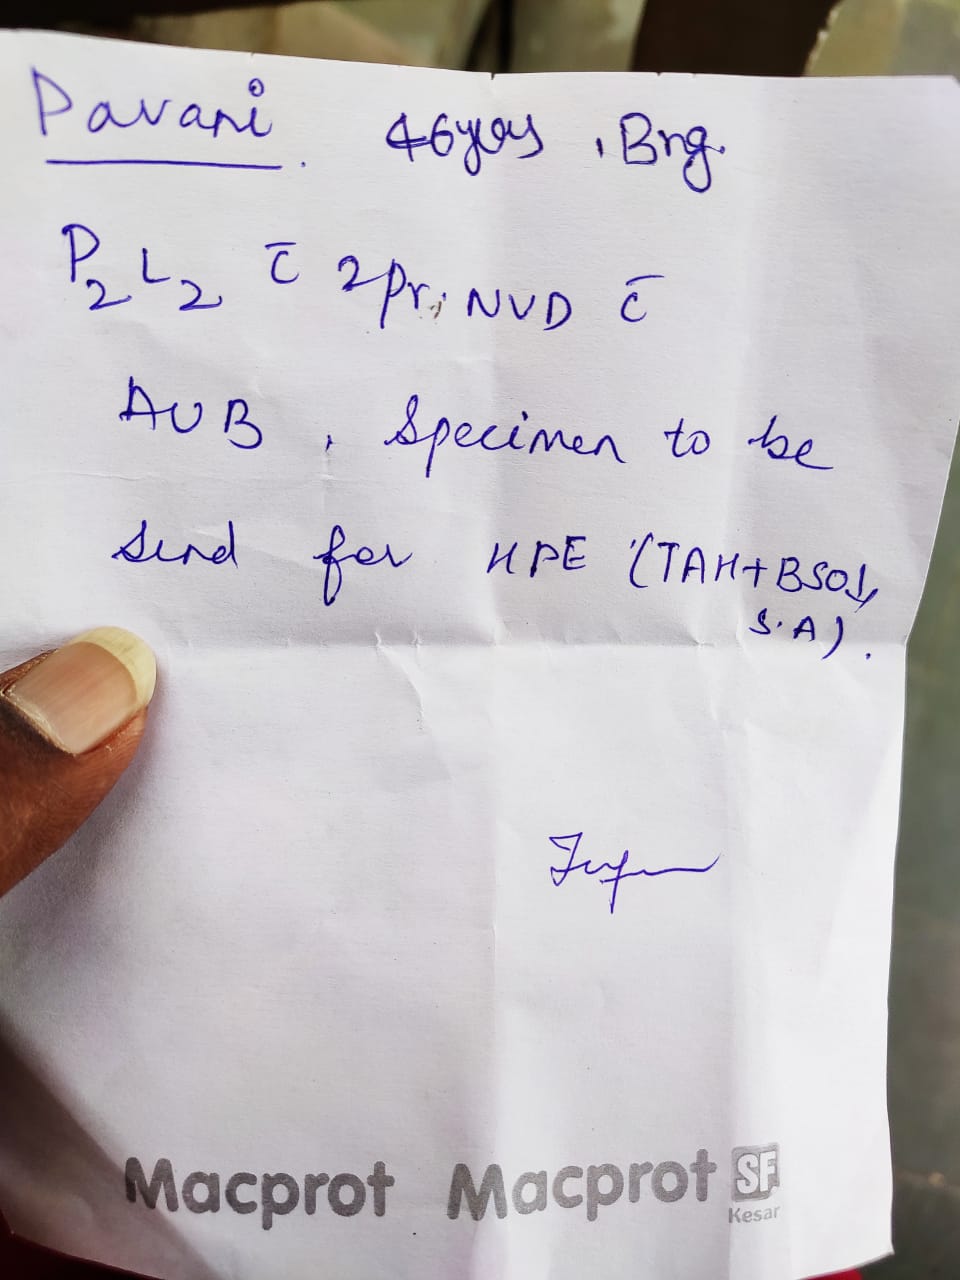 Pavani. 46yrs, Brg.
P2L2 c̄ 2 Pr, NVD c̄
AUB, Specimen to be
send for HPE (TAH+BSO,
S.A).
Macprot Macprot SF
Kesar